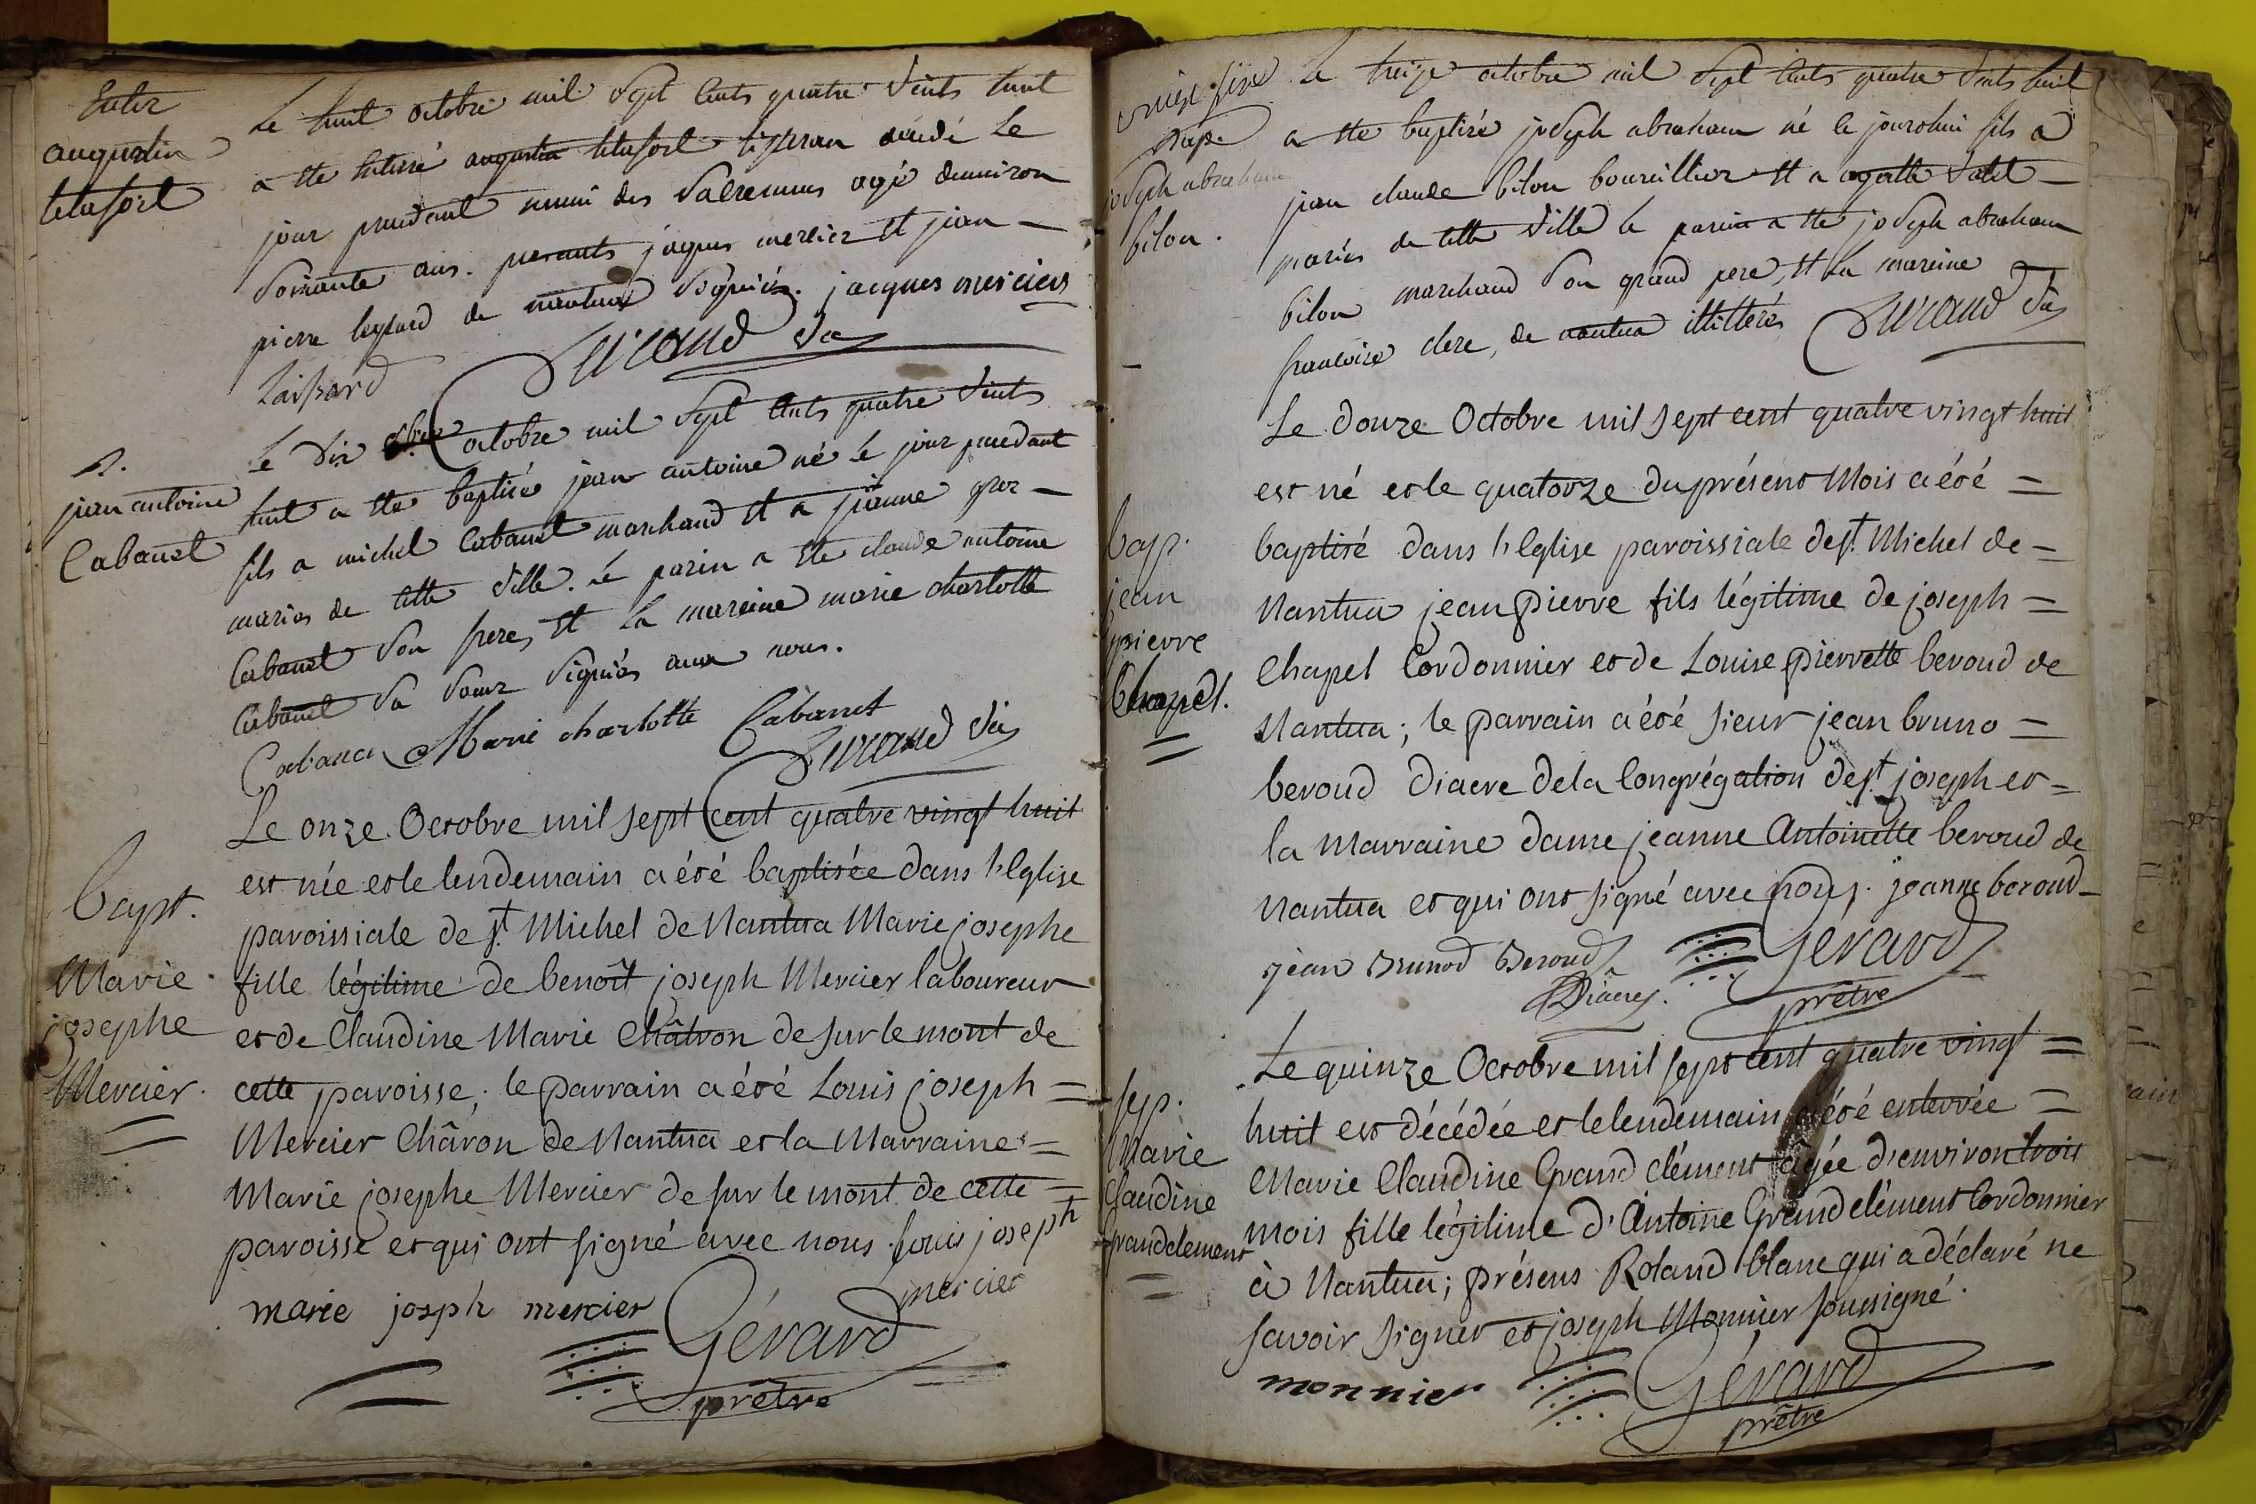 Enter
augustin
le huit octobre mil sept cents quatre vints huit
a ete enterré augustin tisseran décédé le
jour precedant muni des sacremens agé denviron
soixante ans. presants jaques mercier et jean -
pierre de nantua signés. jacques mercier
Laissard
B.
jean antoine
Cabanet
Le dix octobre mil sept cents quatre vints
huit a ete baptisé jean antoine né le jour precedant
fils a michel Cabanet marchand et a jeanne
mariés de cette ville. le parin a ete claude antoine
Cabanet son frere, et la mareine marie charlotte
Cabanet sa soeur signés avec nous.
Cabanet Marie charlotte Cabanet
Bapt.
Marie
josephe
Mercier.
Le onze Octobre mil sept cent quatre vingt huit
est née et le lendemain a été baptisée dans l'Eglise
paroissiale de st. Michel de Nantua Marie josephe
fille légitime de benoît joseph Mercier laboureur
et de Claudine Marie Châtron de sur le mont de
cette paroisse; le parrain a été Louis joseph =
Mercier Châron de Nantua et la Marraine =
Marie josephe Mercier de sur le mont de cette =
paroisse et qui ont signé avec nous. Louis joseph
mercier
marie josph mercier Gérard
prêtre
joseph abraham
bilon.
Le treize octobre mil sept cents quatre vints huit
a ete baptisé joseph abraham né le jourdhui fils a
jean claude bilon bourellier et a agatte
mariés de cette ville le parin a ete joseph abraham
bilon marchand son grand pere, et la mareine
francoise clere, de nantua illitterés
bap.
jean
pierre
Chapel.
Le douze Octobre mil sept cent quatre vingt huit
est né et le quatorze du présent Mois a été =
baptisé dans l'Eglise paroissiale de st. Michel de =
Nantua jean pierre fils légitime de joseph =
Chapel Cordonnier et de Louise pierrette beroud de
Nantua; le parrain a été sieur jean bruno =
beroud Diacre de la Congrégation de st. joseph et =
la Marraine dame jeanne Antoinette beroud de
Nantua et qui ont signé avec nous. jeanne beroud
jean Brunod Beroud Gérard
Diacre. prêtre
sep.
Marie
Claudine
Grandclement
Le quinze Octobre mil sept cent quatre vingt =
huit est décédée et le lendemain a été enterrée =
Marie Claudine Grand clément âgée d'environ trois
mois fille légitime d'Antoine Grand clément Cordonnier
à Nantua; présens Roland blanc qui a déclaré ne
savoir signer et joseph Monnier soussigné.
monnier Gérard
prêtre